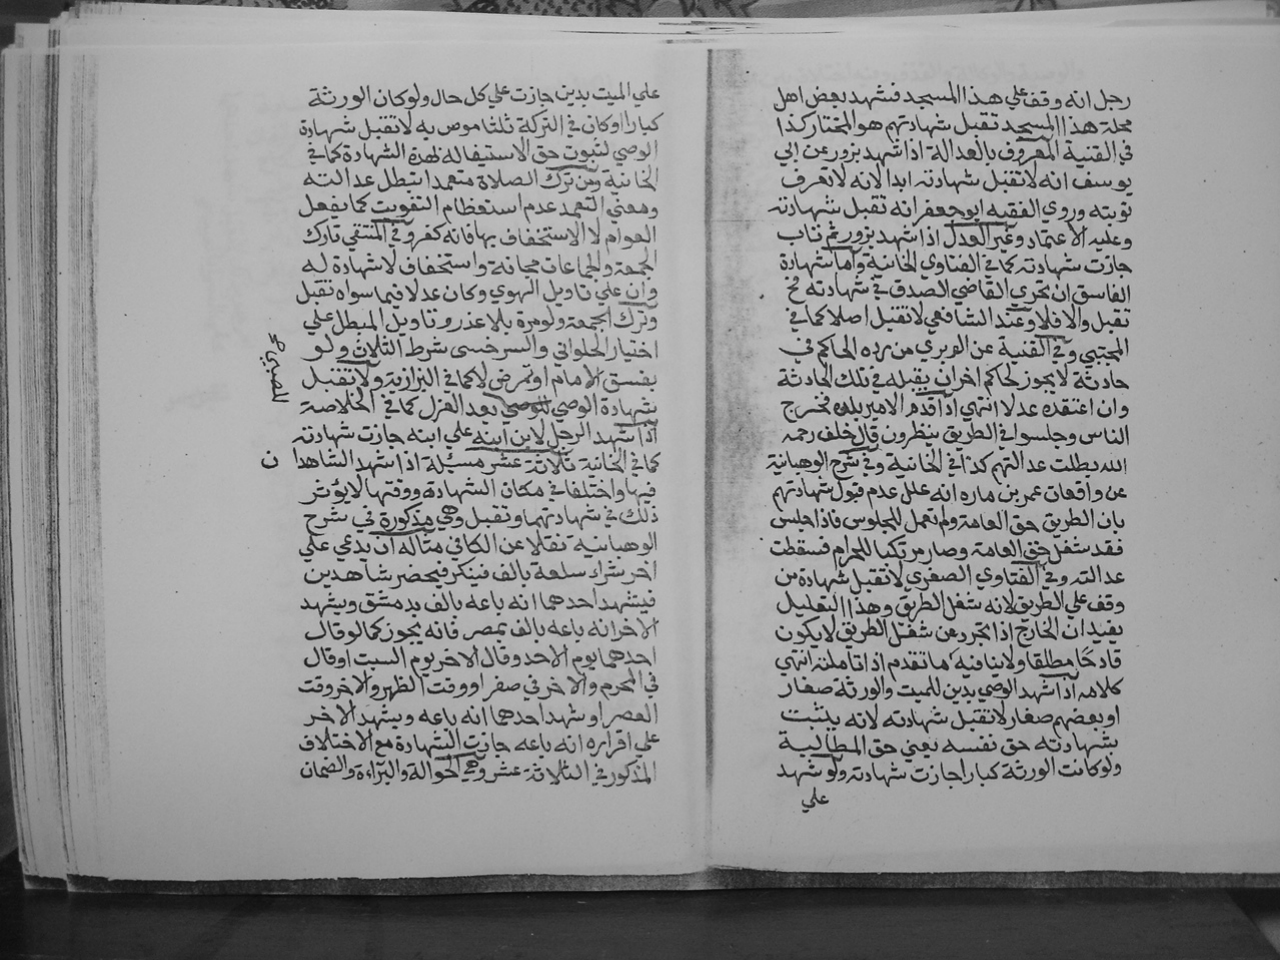 رجل انه وقف علي هذا المسجد فشهد بعض اهل
محلة هذا المسجد تقبل شهادتهم هو المختار كذا
في القنية المعروف بالعدالة اذا شهد بزور عن ابي
يوسف انه لا تقبل شهادته ابدا لانه لا تعرف
توبته وروي الفقيه ابو جعفر انه تقبل شهادته
وعليه الاعتماد وغير العدل اذا شهد بزور ثم تاب
جازت شهادته كما في الفتاوي الخانية واما شهادة
الفاسق ان تحري القاضي الصدق في شهادته ح
تقبل والا فلا وعند الشافعي لا تقبل اصلا كما في
المجتبي وفي القنية عن الوبري من رده الحاكم في
حادثة لا يجوز لحاكم اخر ان يقبله في تلك الحادثة
وان اعتقده عدلا انتهي اذا قدم الامير بلده فخرج
الناس وجلسوا في الطريق ينظرون قال خلف رحمه
الله بطلت عدالتهم كذا في الخانية وفي شرح الوهبانية
عن واقعات عمر بن مازه انه علل عدم قبول شهادتهم
بان الطريق حق العامة ولم تعمل للجلوس فاذا جلس
فقد شغل حق العامة وصار مرتكبا للحرام فسقطت
عدالته وفي الفتاوي الصغري لا تقبل شهادة من
وقف علي الطريق لانه شغل الطريق وهذا التعليل
يفيد ان الخارج اذا تجرد عن شغل الطريق لا يكون
قادحا مطلقا ولا ينافيه ما تقدم اذا تاملته انتهي
كلامه اذا شهد الوصي بدين للميت والورثة صغار
او بعضهم صغار لا تقبل شهادته لانه يثبت
بشهادته حق نفسه يعني حق المطالبة
ولو كانت الورثة كبارا جازت شهادته ولو شهد
علي
علي الميت بدين جازت علي كل حال ولو كان الورثة
كبارا او كان في التركة ثلثا موص به لا تقبل شهادة
الوصي لثبوت حق الاستيفا له لهذه الشهادة كما في
الخانية ومن ترك الصلاة متعمدا تبطل عدالته
ومعني التعمد عدم استعظام التفويت كما يفعل
العوام لا الاستخفاف بها فانه كفر وفي المنتقي تارك
الجمعة والجماعات مجانة واستخفاف لا شهادة له
وان علي تاويل الهوي وكان عدلا فيما سواه تقبل
وترك الجمعة ولو مرة بلا عذر وتاويل المبطل علي
اختيار الحلواني والسرخسي شرط الثلاث ولو
بفسق الامام او تمرض لا كما في البزازية ولا تقبل
شهادة الوصي للوصي بعد العزل كما في الخلاصة
للصبي صح
اذا شهد الرجل لابن ابنه علي ابنه جازت شهادته
كما في الخانية ثلاثة عشر مسئلة اذا شهد الشاهدا
ن
فيها واختلفا في مكان الشهادة ووقتها لا يؤثر
ذلك في شهادتهما وتقبل وهي مذكورة في شرح
الوهبانية نقلا عن الكافي مثاله ان يدعي علي
اخر شراء سلعة بالف فينكر فيحضر شاهدين
فيشهد احدهما انه باعه بالف بدمشق ويشهد
الاخر انه باعه بالف بمصر فانه يجوز كما لو قال
احدهما يوم الاحد وقال الاخر يوم السبت او قال
في المحرم والاخر في صفر او وقت الظهر والاخر وقت
العصر او شهد احدهما انه باعه ويشهد الاخر
علي اقراره انه باعه جازت الشهادة مع الاختلاف
المذكور في الثلاثة عشر وهي الحوالة والبراءة والضمان